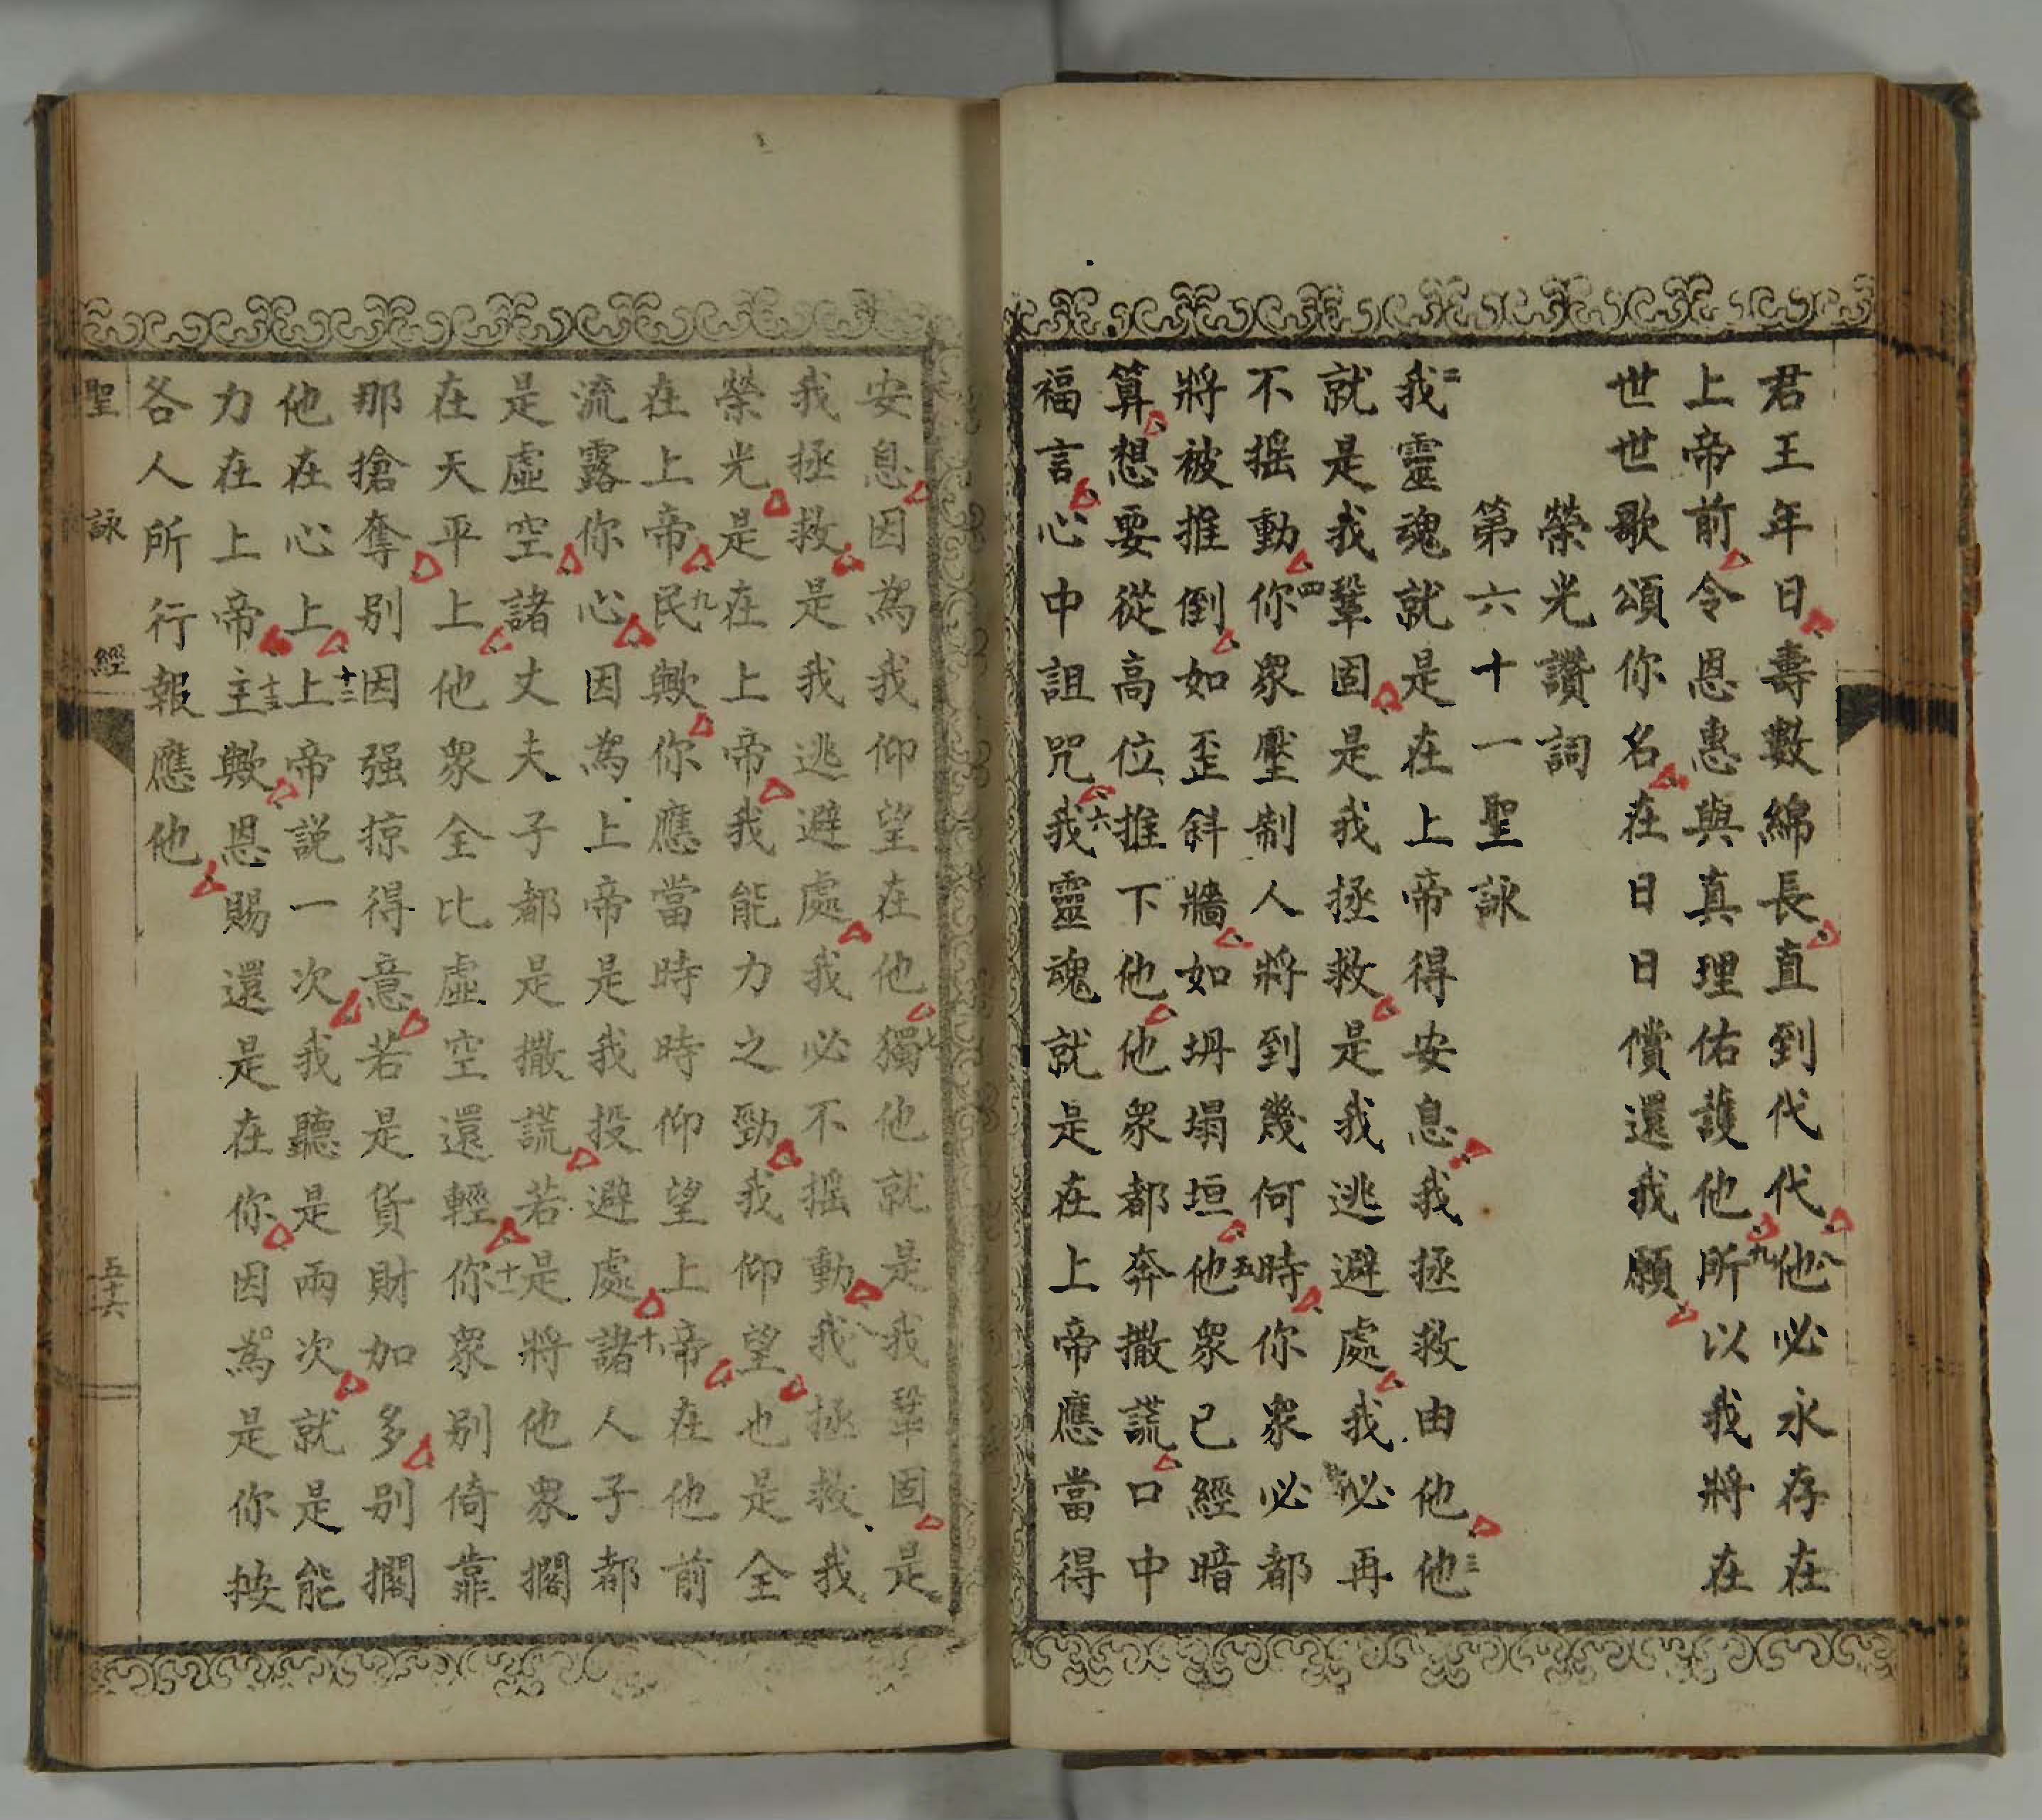 君王年日壽數綿長直到代代他八必永存在
上帝前令恩惠與真理佑護他所九以我將在
世世歌頌你名在日日償還我願
榮光讚詞
第六十一聖詠
我二靈魂就是在上帝得安息我拯救由他他三
就是我鞏固是我拯救是我逃避處我必再
不搖動你四眾壓制人將到幾何時你眾必都
將被推倒如歪斜牆如坍塌垣他五眾已經暗
算想要從高位推下他他眾都奔撒謊口中
福言心中詛咒我六靈魂就是在上帝應當得
安息因為我仰望在他獨七他就是我鞏固是
我拯救是我逃避處我必不搖動我八拯救我
榮光是在上帝我能力之勁我仰望也是全
在上帝民九歟你應當時時仰望上帝在他前
流露你心因為上帝是我投避處諸十人子都
是虛空諸丈夫子都是撒謊若是將他眾擱
在天平上他眾全比虛空還輕你十一眾别倚靠
那搶奪别因强掠得意若是貨財加多别擱
他在心上上十二帝説一次我聽是兩次就是能
力在上帝主十三歟恩賜還是在你因為是你按
各人所行報應他
聖詠經
五十六